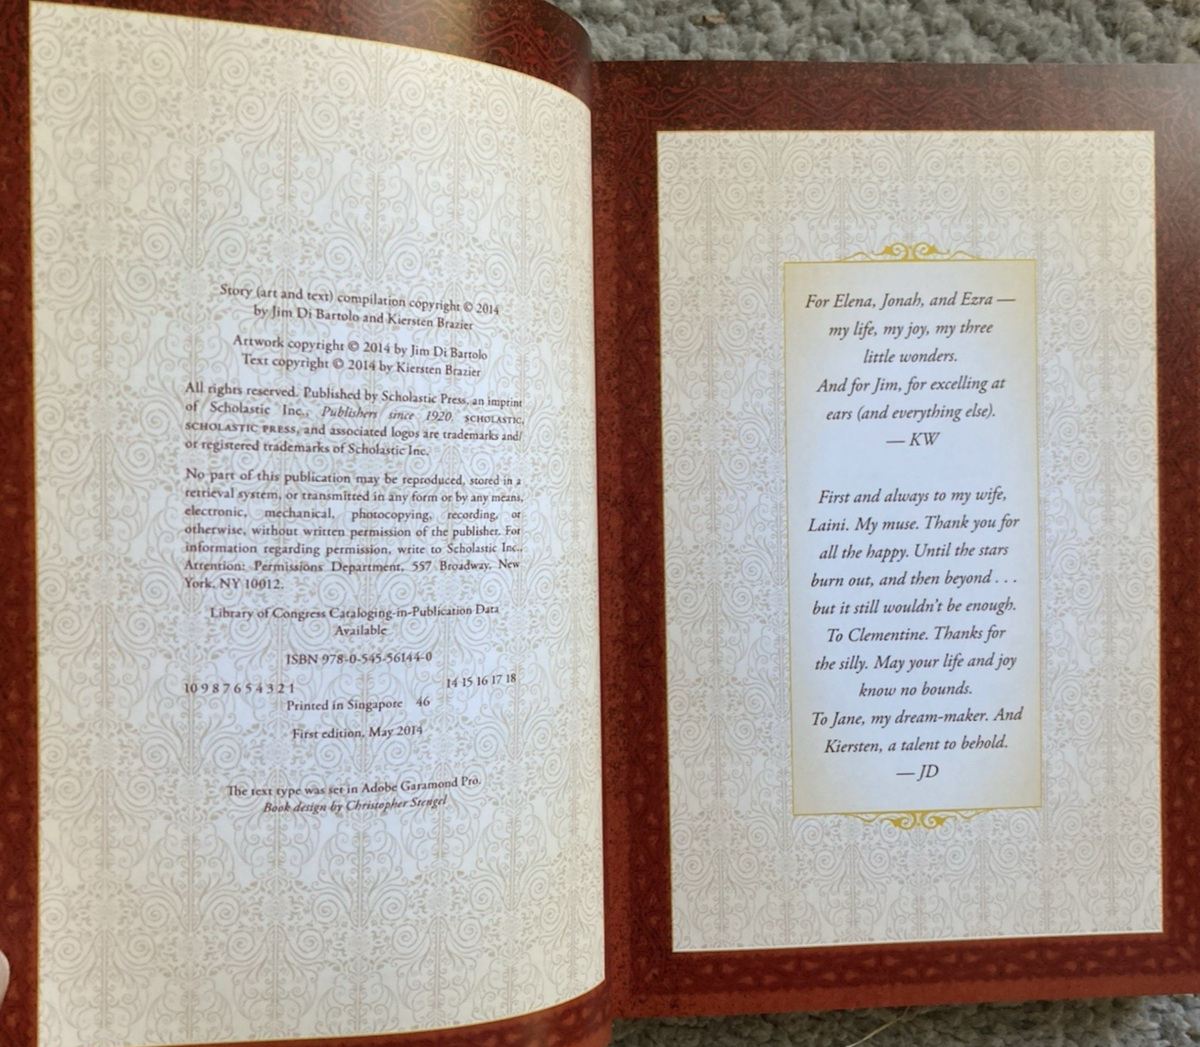 Story (art and text) compilation copyright © 2014
by Jim Di Bartolo and Kiersten Brazier
Artwork copyright © 2014 by Jim Di Bartolo
Text copyright © 2014 by Kiersten Brazier
All rights reserved. Published by Scholastic Press, an imprint
of Scholastic Inc., Publishers since 1920. SCHOLASTIC,
SCHOLASTIC PRESS, and associated logos are trademarks and/
or registered trademarks of Scholastic Inc.
No part of this publication may be reproduced, stored in a
retrieval system, or transmitted in any form or by any means,
electronic, mechanical, photocopying, recording, or
otherwise, without written permission of the publisher. For
information regarding permission, write to Scholastic Inc.,
Attention: Permissions Department, 557 Broadway, New
York, NY 10012.
Library of Congress Cataloging-in-Publication Data
Available
ISBN 978-0-545-56144-0
10 9 8 7 6 5 4 3 2 1 14 15 16 17 18
Printed in Singapore 46
First edition, May 2014
The text type was set in Adobe Garamond Pro.
Book design by Christopher Stengel
For Elena, Jonah, and Ezra —
my life, my joy, my three
little wonders.
And for Jim, for excelling at
ears (and everything else).
— KW
First and always to my wife,
Laini. My muse. Thank you for
all the happy. Until the stars
burn out, and then beyond . . .
but it still wouldn't be enough.
To Clementine. Thanks for
the silly. May your life and joy
know no bounds.
To Jane, my dream-maker. And
Kiersten, a talent to behold.
— JD